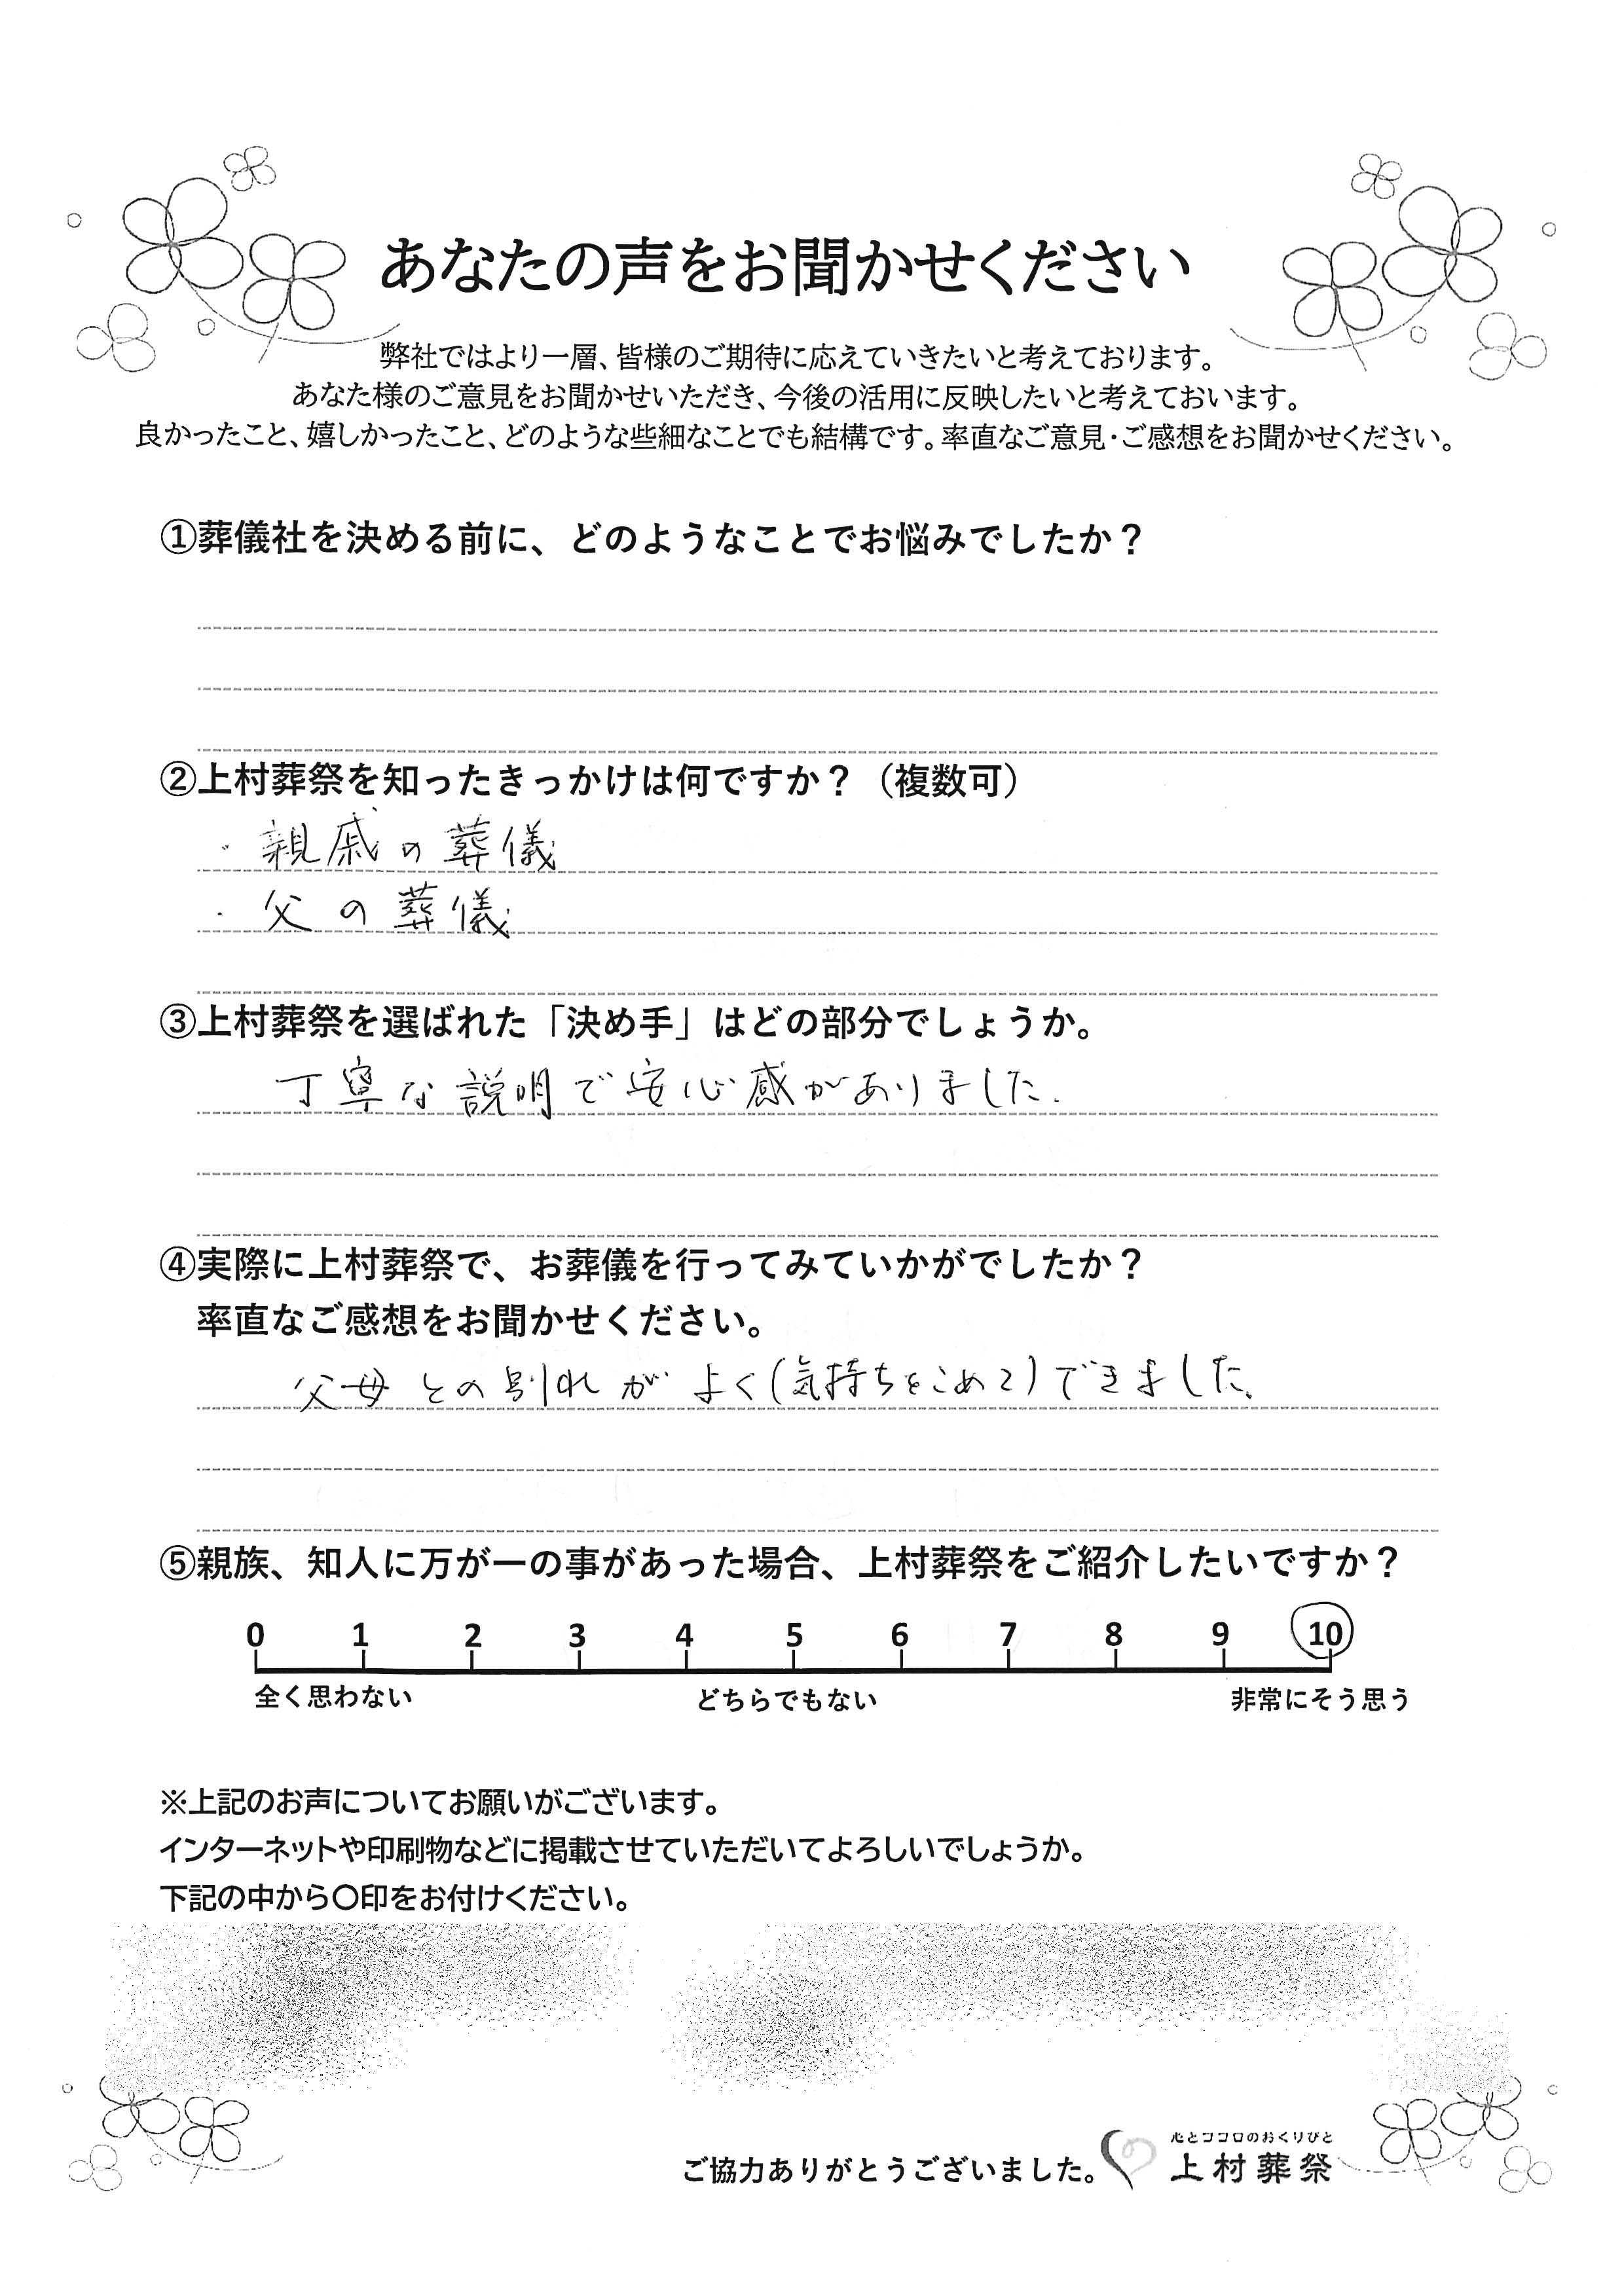 あなたの声をお聞かせください
弊社ではより一層、皆様のご期待に応えていきたいと考えております。
あなた様のご意見をお聞かせいただき、今後の活用に反映したいと考えておいます。
良かったこと、嬉しかったこと、どのような些細なことでも結構です。率直なご意見・ご感想をお聞かせください。
①葬儀社を決める前に、どのようなことでお悩みでしたか？
②上村葬祭を知ったきっかけは何ですか？（複数可）
・親戚の葬儀
・父の葬儀
③上村葬祭を選ばれた「決め手」はどの部分でしょうか。
丁寧な説明で安心感がありました.
④実際に上村葬祭で、お葬儀を行ってみていかがでしたか？
率直なご感想をお聞かせください。
父母との別れがよく(気持ちをこめて)できました。
⑤親族、知人に万が一の事があった場合、上村葬祭をご紹介したいですか？
0 1 2 3 4 5 6 7 8 9 10
全く思わない どちらでもない 非常にそう思う
※上記のお声についてお願いがございます。
インターネットや印刷物などに掲載させていただいてよろしいでしょうか。
下記の中から〇印をお付けください。
心とココロのおくりびと
ご協力ありがとうございました。 上村葬祭